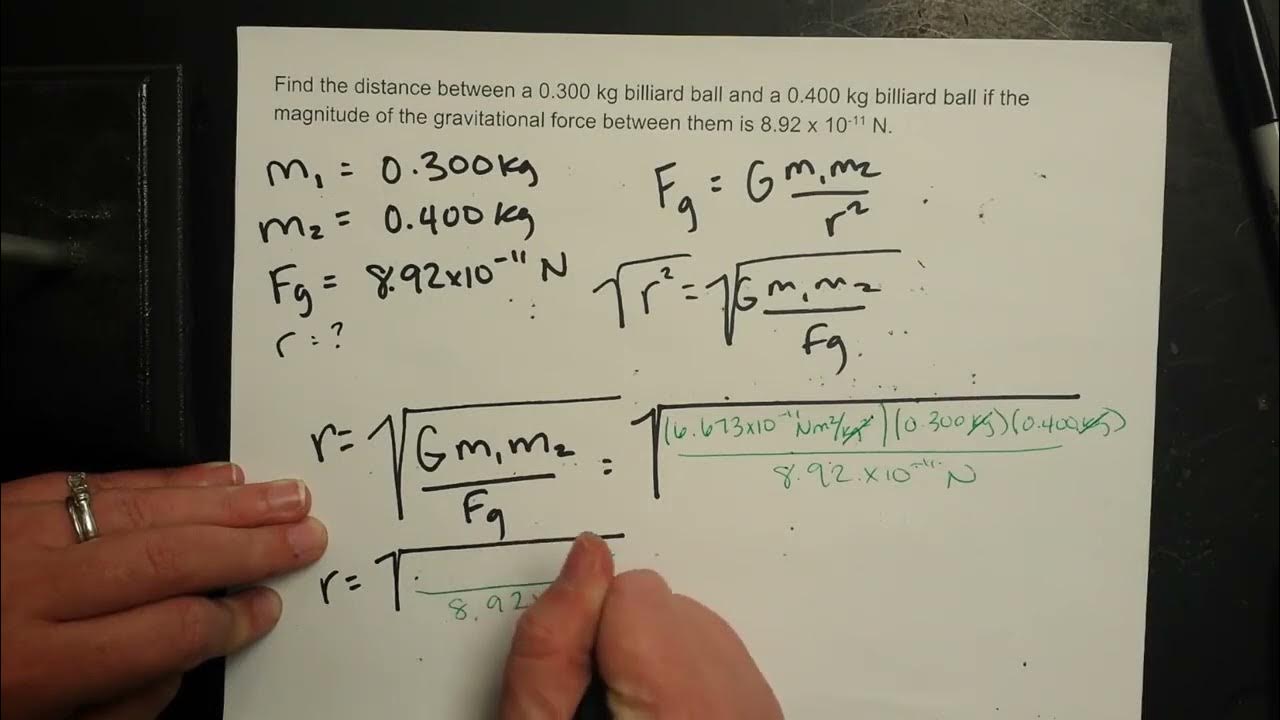 Find the distance between a 0.300 kg billiard ball and a 0.400 kg billiard ball if the
magnitude of the gravitational force between them is 8.92 x 10⁻¹¹ N.
m₁ = 0.300 kg
m₂ = 0.400 kg
Fg = 8.92x10⁻¹¹ N
r = ?
Fg = G m₁m₂ / r²
√r² = √(G m₁m₂ / Fg)
r = √(G m₁m₂ / Fg) = √((6.673x10⁻¹¹ Nm²/kg²)(0.300kg)(0.400kg) / 8.92x10⁻¹¹ N)
r = √ 8.92x